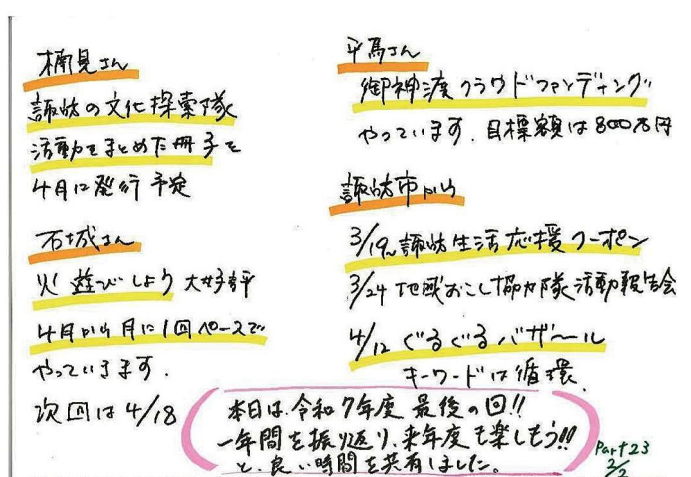 楠見さん
諏訪の文化探索隊
活動をまとめた冊子を
4月に発行予定
石城さん
火遊びしよう 大好評
4月から月に1回ペースで
やっています.
次回は4/18
平馬さん
御神渡クラウドファンディング
やっています. 目標額は800万円
諏訪市から
3/19〜諏訪生活応援クーポン
3/24 地域おこし協力隊活動報告会
4/12 ぐるぐるバザール
キーワードは循環.
本日は、令和7年度 最後の回!!
一年間を振り返り、来年度も楽しもう!!
と、良い時間を共有しました。
Part23
2/2